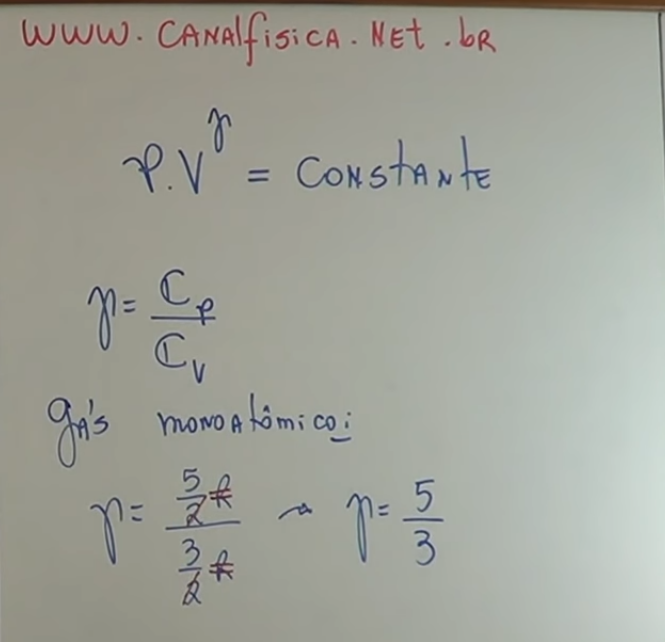 www.CANAlfisicA.NEt.bR
P.V^γ = CONStANtE
γ = C_P / C_V
gÁS MONOAtôMico:
γ = (5/2 R) / (3/2 R) → γ = 5/3